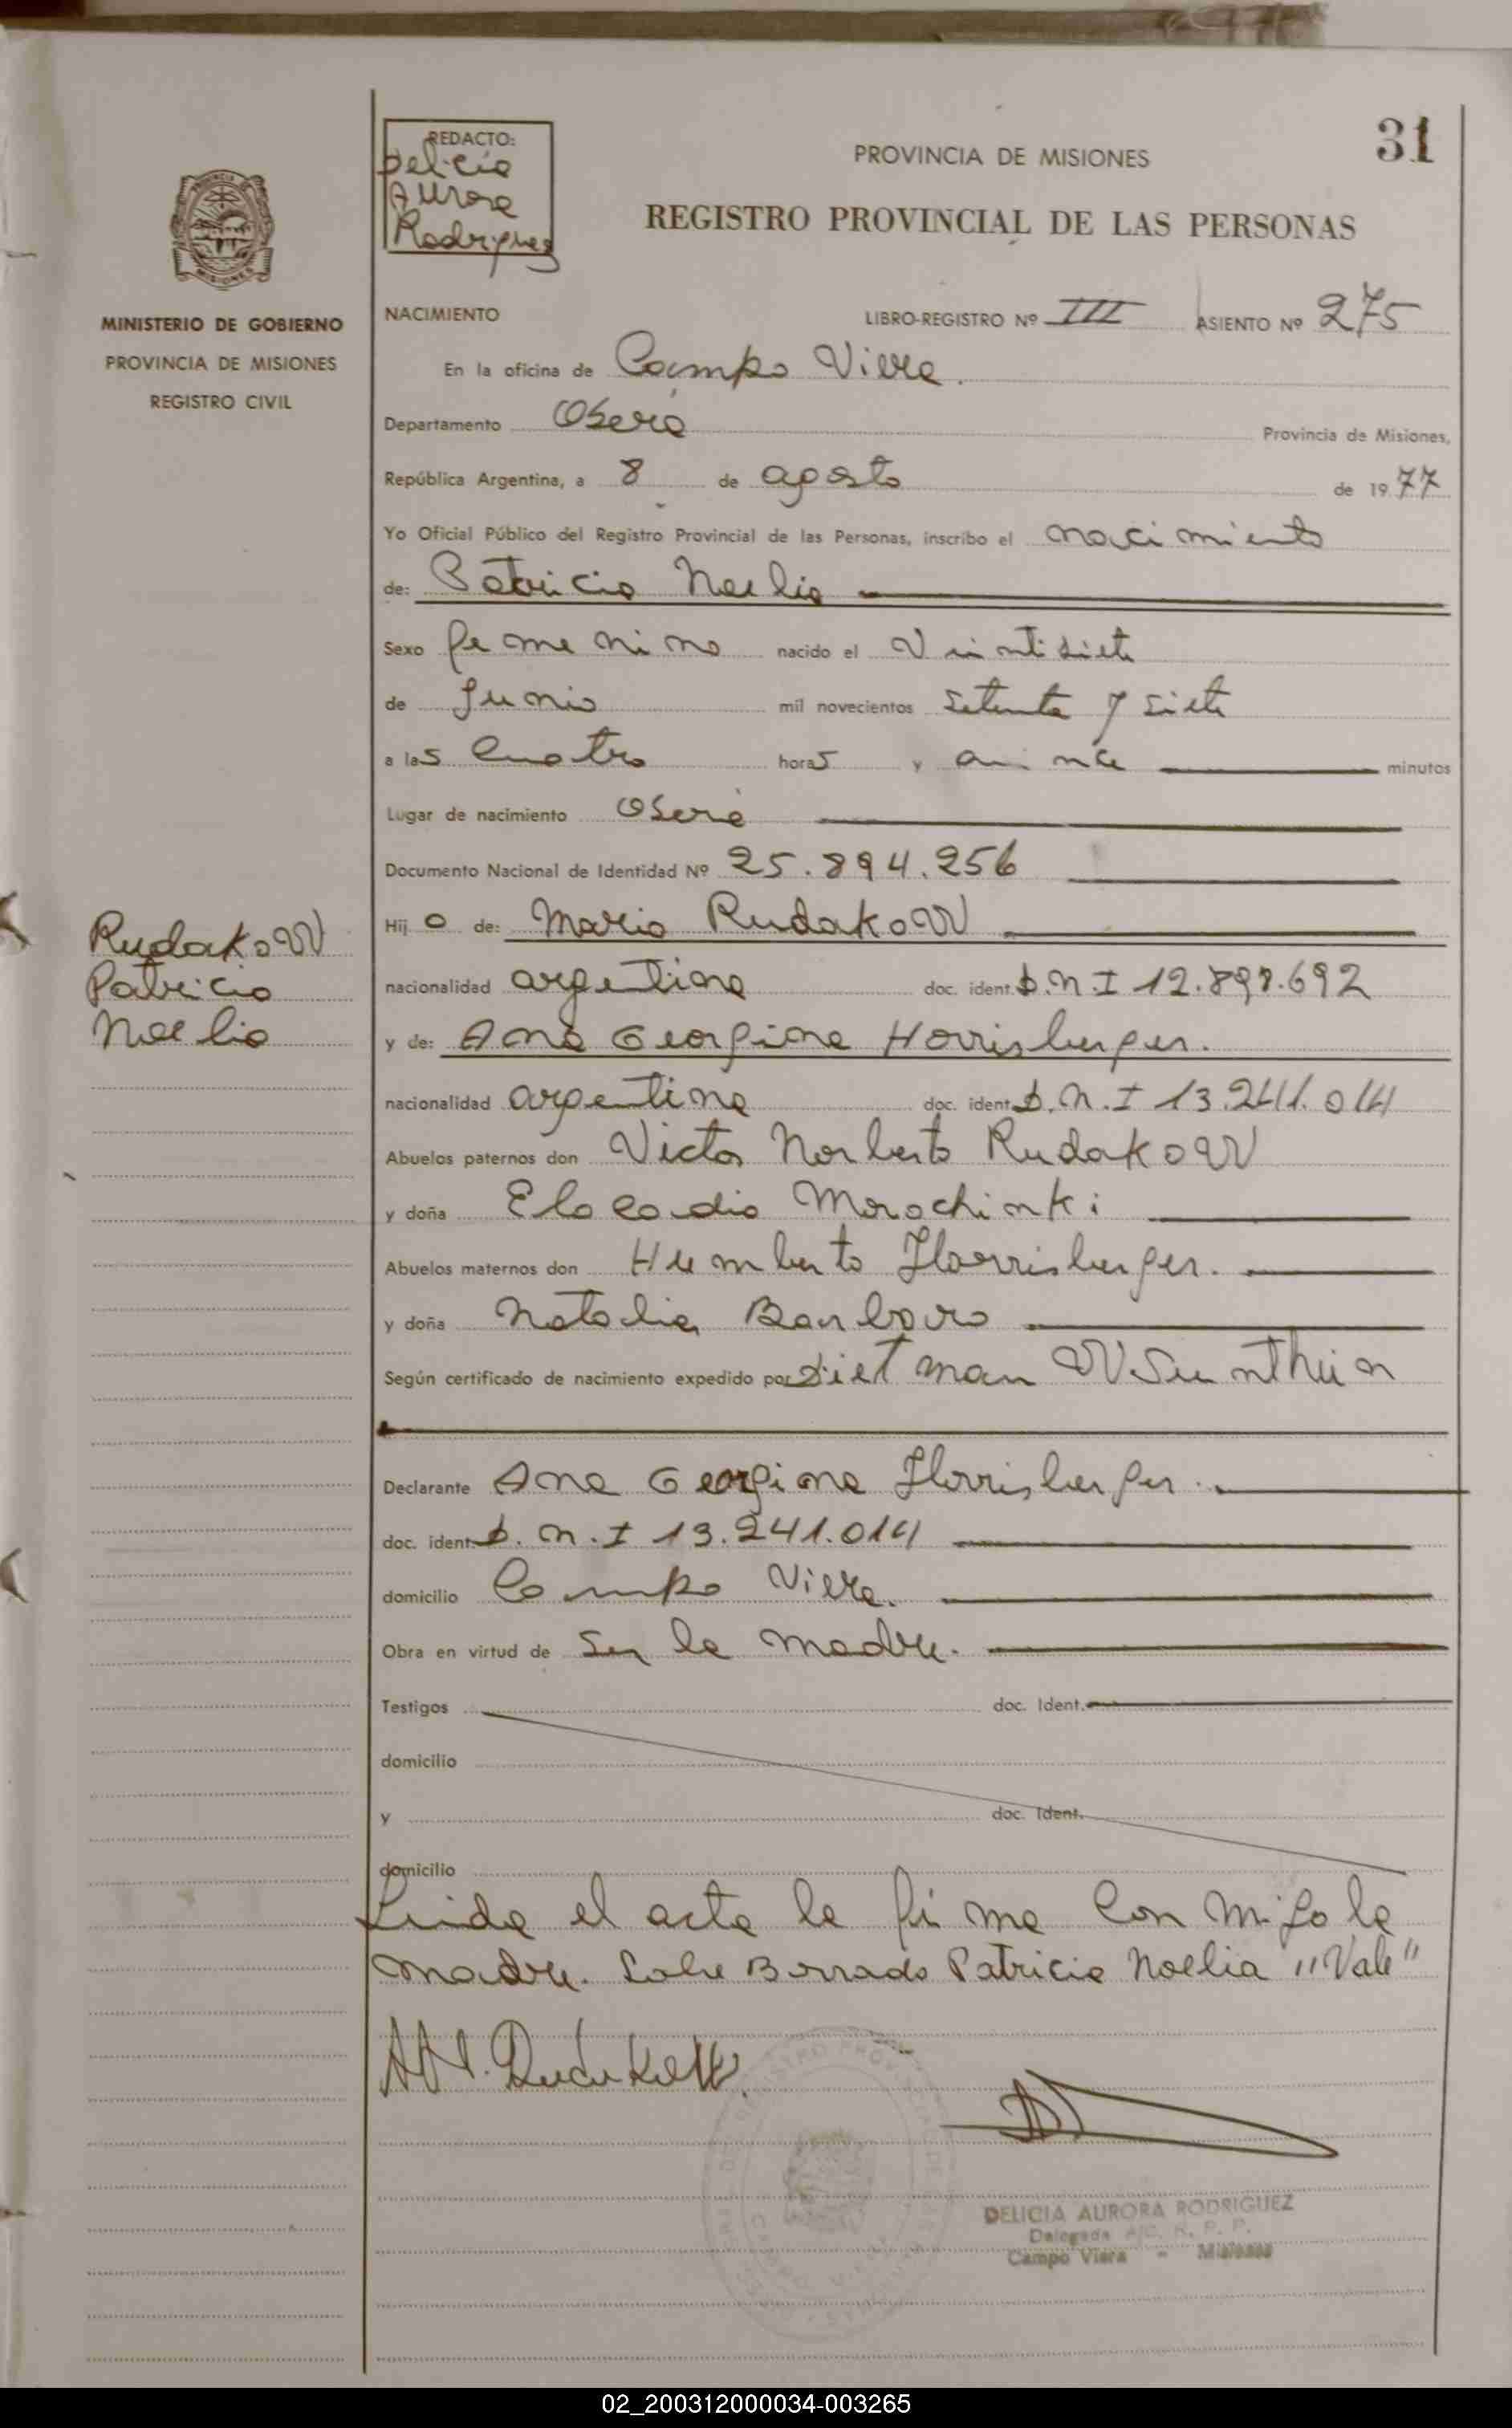 REDACTO:
Delicia
Aurora
Rodriguez
31
PROVINCIA DE MISIONES
REGISTRO PROVINCIAL DE LAS PERSONAS
MINISTERIO DE GOBIERNO
PROVINCIA DE MISIONES
REGISTRO CIVIL
NACIMIENTO LIBRO-REGISTRO Nº III ASIENTO Nº 275
En la oficina de Campo Viera.
Departamento Oberá Provincia de Misiones,
República Argentina, a 8 de agosto de 1977
Yo Oficial Público del Registro Provincial de las Personas, inscribo el nacimiento
de: Patricia Noelia
Sexo femenino nacido el Veintisiete
de Junio mil novecientos setenta y siete
a las Cuatro horas y quince minutos
Lugar de nacimiento Oberá
Documento Nacional de Identidad Nº 25.894.256
Rudakow
Patricia
Noelia
Hij a de: Mario Rudakow
nacionalidad argentina doc. ident. D.N.I 12.897.692
y de: Ana Georgina Horrisberger.
nacionalidad argentina doc. ident. D.N.I 13.241.014
Abuelos paternos don Victor Norberto Rudakow
y doña Elocadia Morochinki
Abuelos maternos don Humberto Horrisberger.
y doña Natalia Barbaro
Según certificado de nacimiento expedido por Dietman
Declarante Ana Georgina Horrisberger.
doc. ident. D.N.I 13.241.014
domicilio Campo Viera.
Obra en virtud de Ser la madre.
Testigos doc. Ident.
domicilio
y doc. Ident.
domicilio
Leida el acta la firma Con migo la
madre. Sobre Borrado Patricia Noelia "Vale"
DELICIA AURORA RODRIGUEZ
Delegada A/C. R. P. P.
Campo Viera - Misiones
02_200312000034-003265